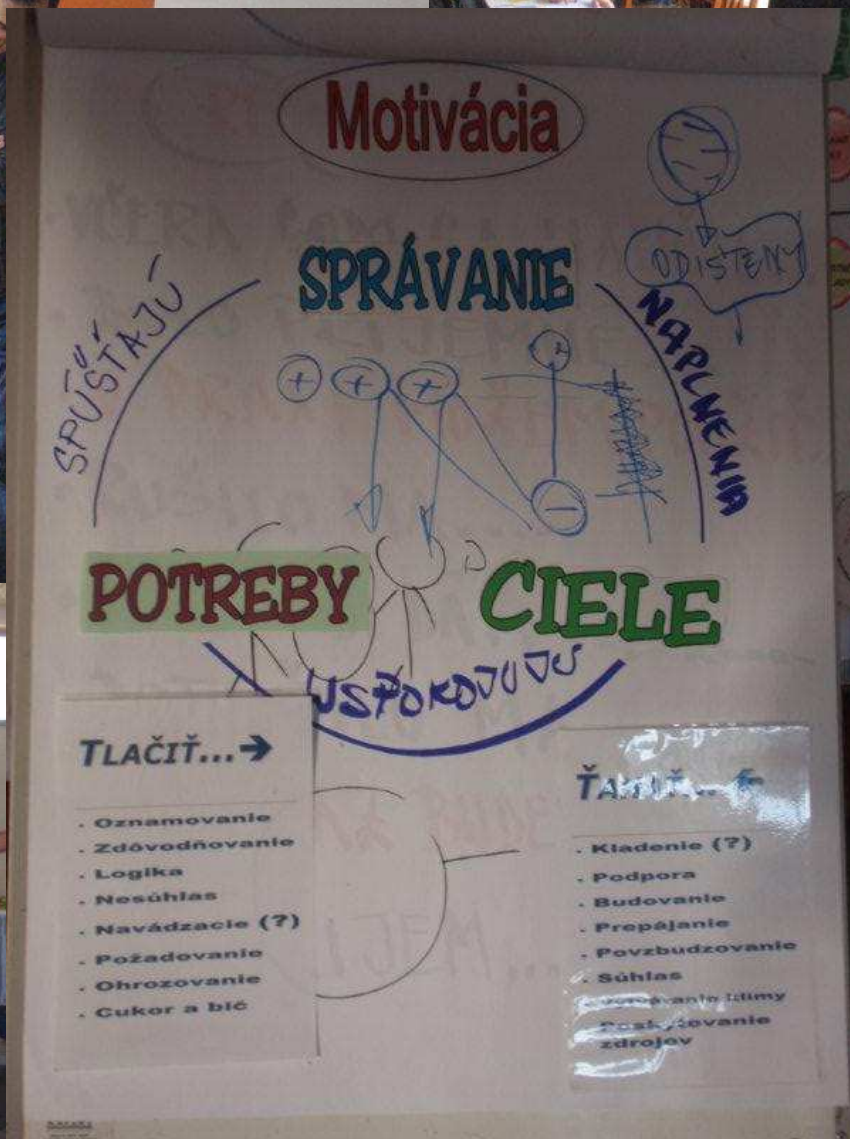 Motivácia
SPRÁVANIE
ODISTENÝ
SPÚŠŤAJÚ
NAPLNENIA
+ + +
POTREBY
CIELE
USPOKOJUJÚ
TLAČIŤ...→
. Oznamovanie
. Zdôvodňovanie
. Logika
. Nesúhlas
. Navádzacie (?)
. Požadovanie
. Ohrozovanie
. Cukor a bič
ŤAHAŤ...←
. Kladenie (?)
. Podpora
. Budovanie
. Prepájanie
. Povzbudzovanie
. Súhlas
. Vytváranie klímy
. Poskytovanie
zdrojov